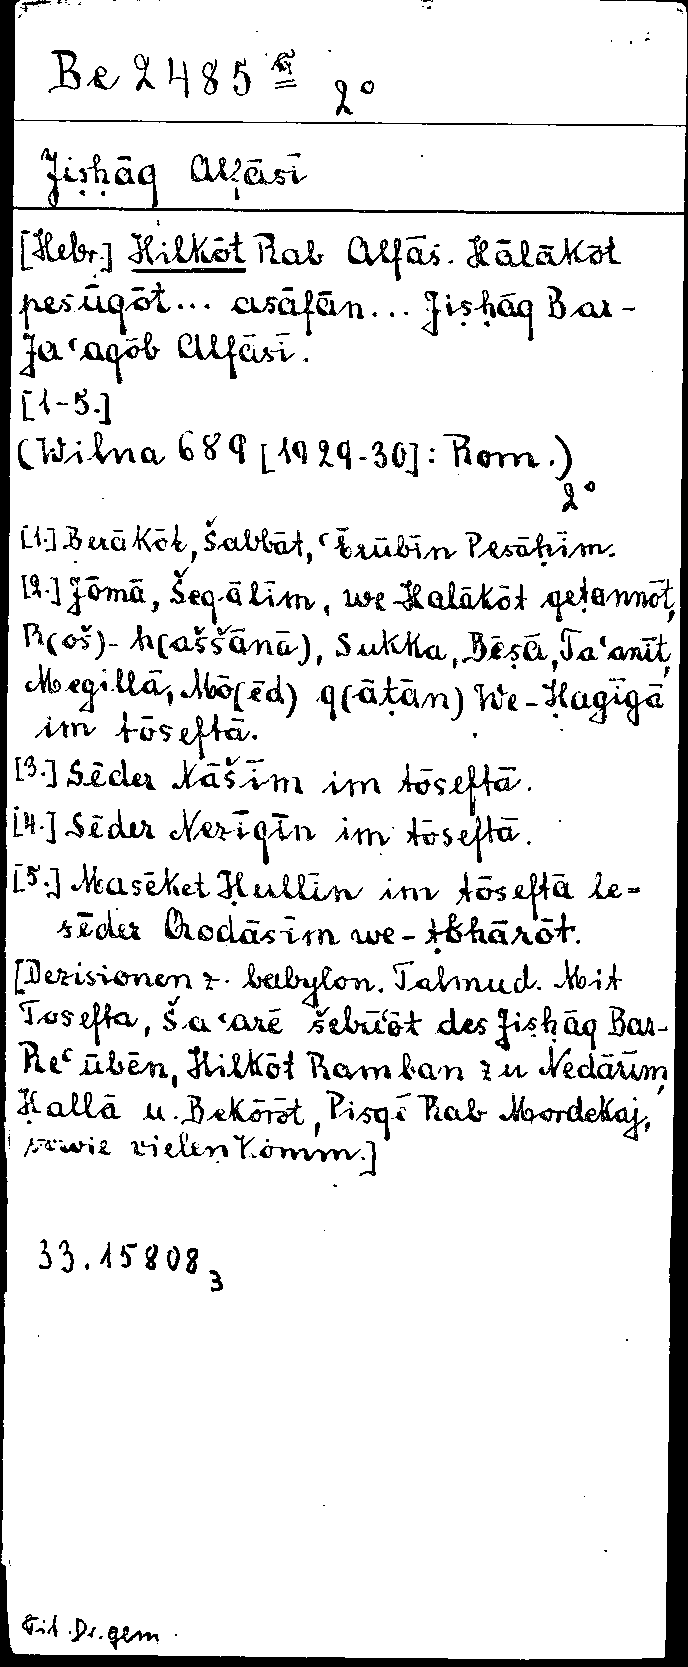 Be 2485 2°
Jiṣḥāq Alfāsī
[Hebr.] Hilkōt Rab Alfās. Hălākōt
pesūqōt... asāfān... Jiṣḥāq Bar-
Jaʿaqōb Alfāsī.
[1-5.]
(Wilna 689 [1929-30]: Rom.)
2°
[1.] Berākōt, Šabbāt, ʿĒrūbīn Pesāḥīm.
[2.] Jōmā, Šeqālīm, we-Halākōt qeṭannōt,
R(oš)-h(aššānā), Sukka, Bēṣā, Taʿanīt,
Megillā, Mō(ēd) q(āṭān) We-Ḥagīgā
im tōseftā.
[3.] Sēder Nāšīm im tōseftā.
[4.] Sēder Nezīqīn im tōseftā.
[5.] Masēket Ḥullīn im tōseftā le-
sēder Qodāšīm we-ṭohārōt.
[Dezisionen z. babylon. Talmud. Mit
Tosefta, Šaʿarē šebūʿōt des Jiṣḥāq Bar-
Reʾūbēn, Hilkōt Ramban zu Nedārīm,
Ḥallā u. Bekōrōt, Pisqē Rab Mordekaj,
sowie vielen Komm.]
33.15808 3
Tit. Dr. gem.